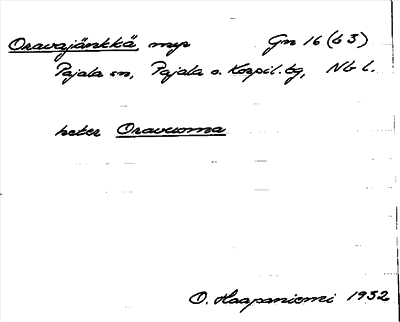 Oravajänkkä, myr Gn 16 (b 3)
Pajala sn, Pajala o. Korpil. tg, Nb l.
heter Oravuoma
O. Haapaniemi 1932